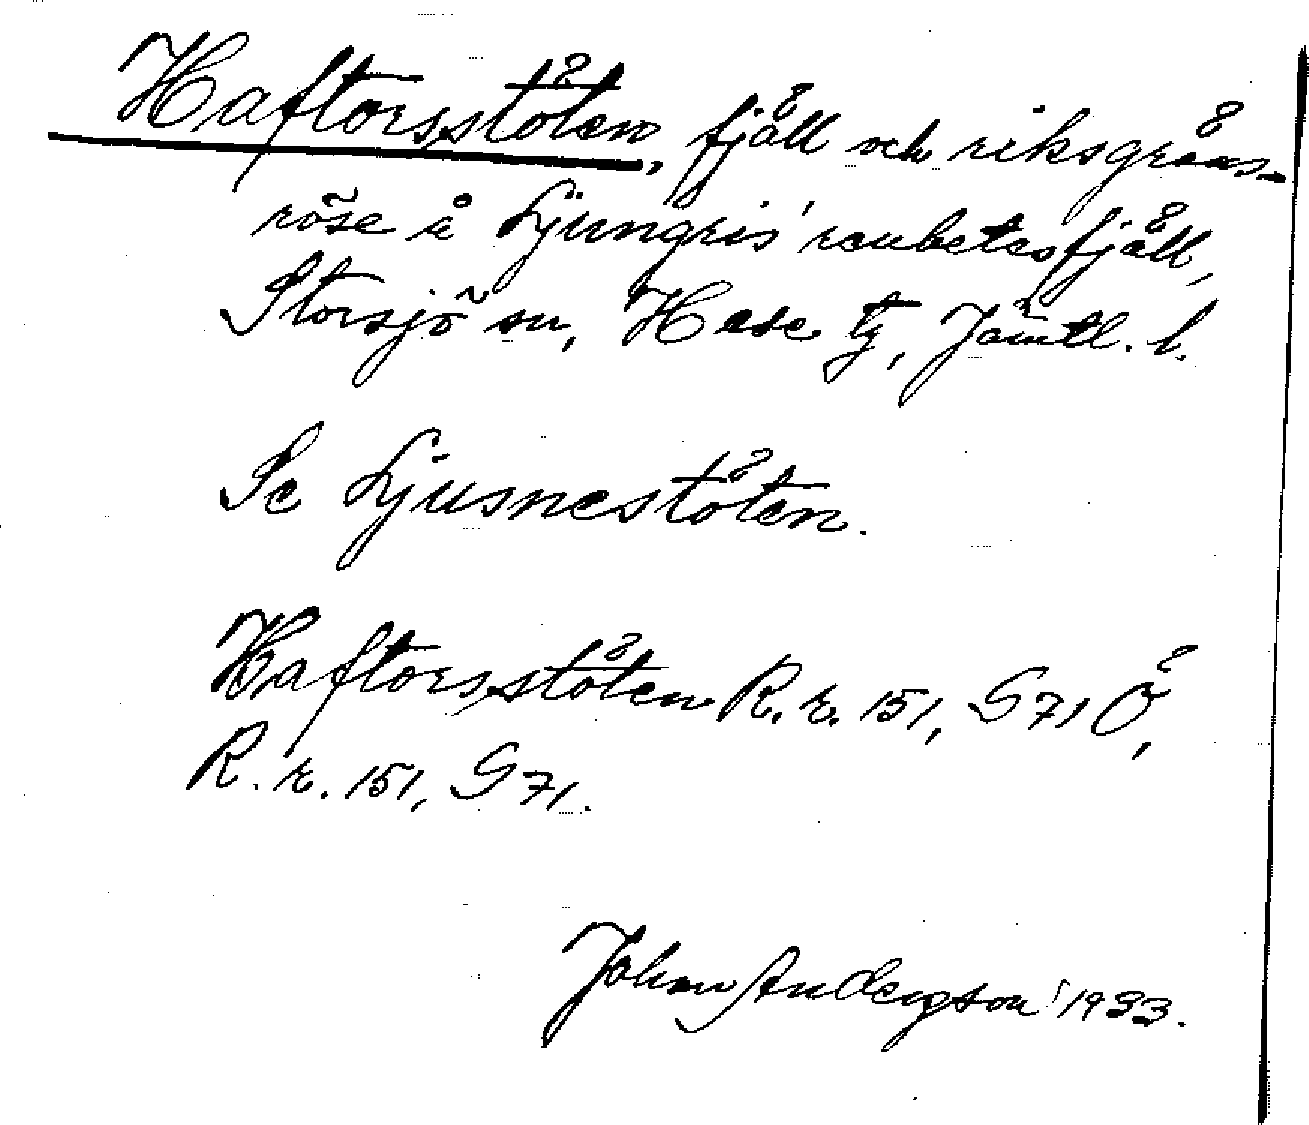 Haftorsstöten, fjäll och riksgräns-
röse å Ljungris' renbetesfjäll,
Storsjö sn, Hede tg, Jämtl. l.
Se Ljusnestöten.
Haftorsstöten R. r. 151, G 71 Ö,
R. r. 151, G 71.
Johan Andersson 1933.